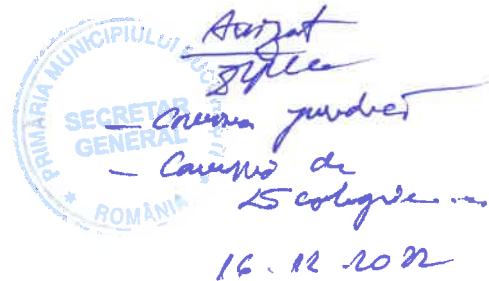 PRIMĂRIA MUNICIPIULUI
SECRETAR
GENERAL
ROMÂNIA
Avizat
- Comisia juridică
- Comisia de
Ecologie
16.12.2022